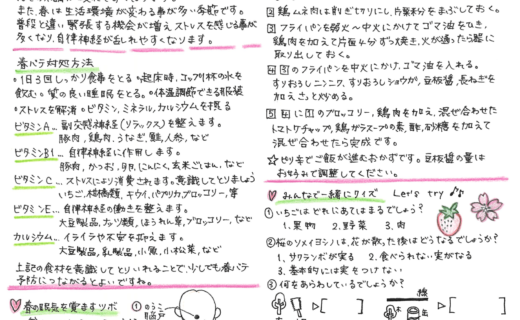 また、春は生活環境が変わる事が多い季節です。
普段と違い緊張する機会が増えストレスを感じる事が
多くなり、自律神経が乱れやすくなります。
春バテ対処方法
・1日3回しっかり食事をとる ・起床時、コップ1杯の水を
飲む ・質の良い睡眠をとる。・体温調節できる服装
・ストレスを解消 ・ビタミン、ミネラル、カルシウムを摂る
ビタミンA… 副交感神経(リラックス)を整えます。
豚肉、鶏肉、うなぎ、鮭、人参、など
ビタミンB1… 自律神経に作用します。
豚肉、かつお、卵、にんにく、玄米ごはん、など
ビタミンC… ストレスにより消費されます。意識してとりましょう
いちご、柑橘類、キウイ、パプリカ、ブロッコリー、等
ビタミンE… 自律神経の働きを整えます。
大豆製品、ナッツ類、ほうれん草、ブロッコリー、など
カルシウム… イライラや不安を抑えます。
大豆製品、乳製品、小魚、小松菜、など
上記の食材を意識してとりいれることで、少しでも春バテ
予防につながるとよいですね。
春の眠気を覚ますツボ
①のうこ
脳戸
2 鶏ムネ肉は削ぎ切りにし、片栗粉をまぶしておく。
3 フライパンを弱火〜中火にかけてゴマ油をひき、
鶏肉を加えて片面4分ずつ焼き、火が通ったら器に
取り出しておく。
4 3のフライパンを中火にかけ、ゴマ油を入れる。
すりおろしニンニク、すりおろしショウガ、豆板醤、長ねぎを
加えさっと炒める。
5 4に1のブロッコリー、鶏肉を加え、混ぜ合わせた
トマトケチャップ、鶏ガラスープの素、酢、砂糖を加えて
混ぜ合わせたら完成です。
☆ピリ辛でご飯が進むおかずです。豆板醤の量は
お好みで調整してください。
みんなで一緒にクイズ Let's try
①いちごはどれにあてはまるでしょう?
1. 果物 2. 野菜 3. 肉
②桜のソメイヨシノは、花が散った後はどうなるでしょうか?
1. サクランボが実る 2. 食べられない実がなる
3. 基本的には実をつけない
③何をあらわしているでしょうか?
橋
[ ] [ ]